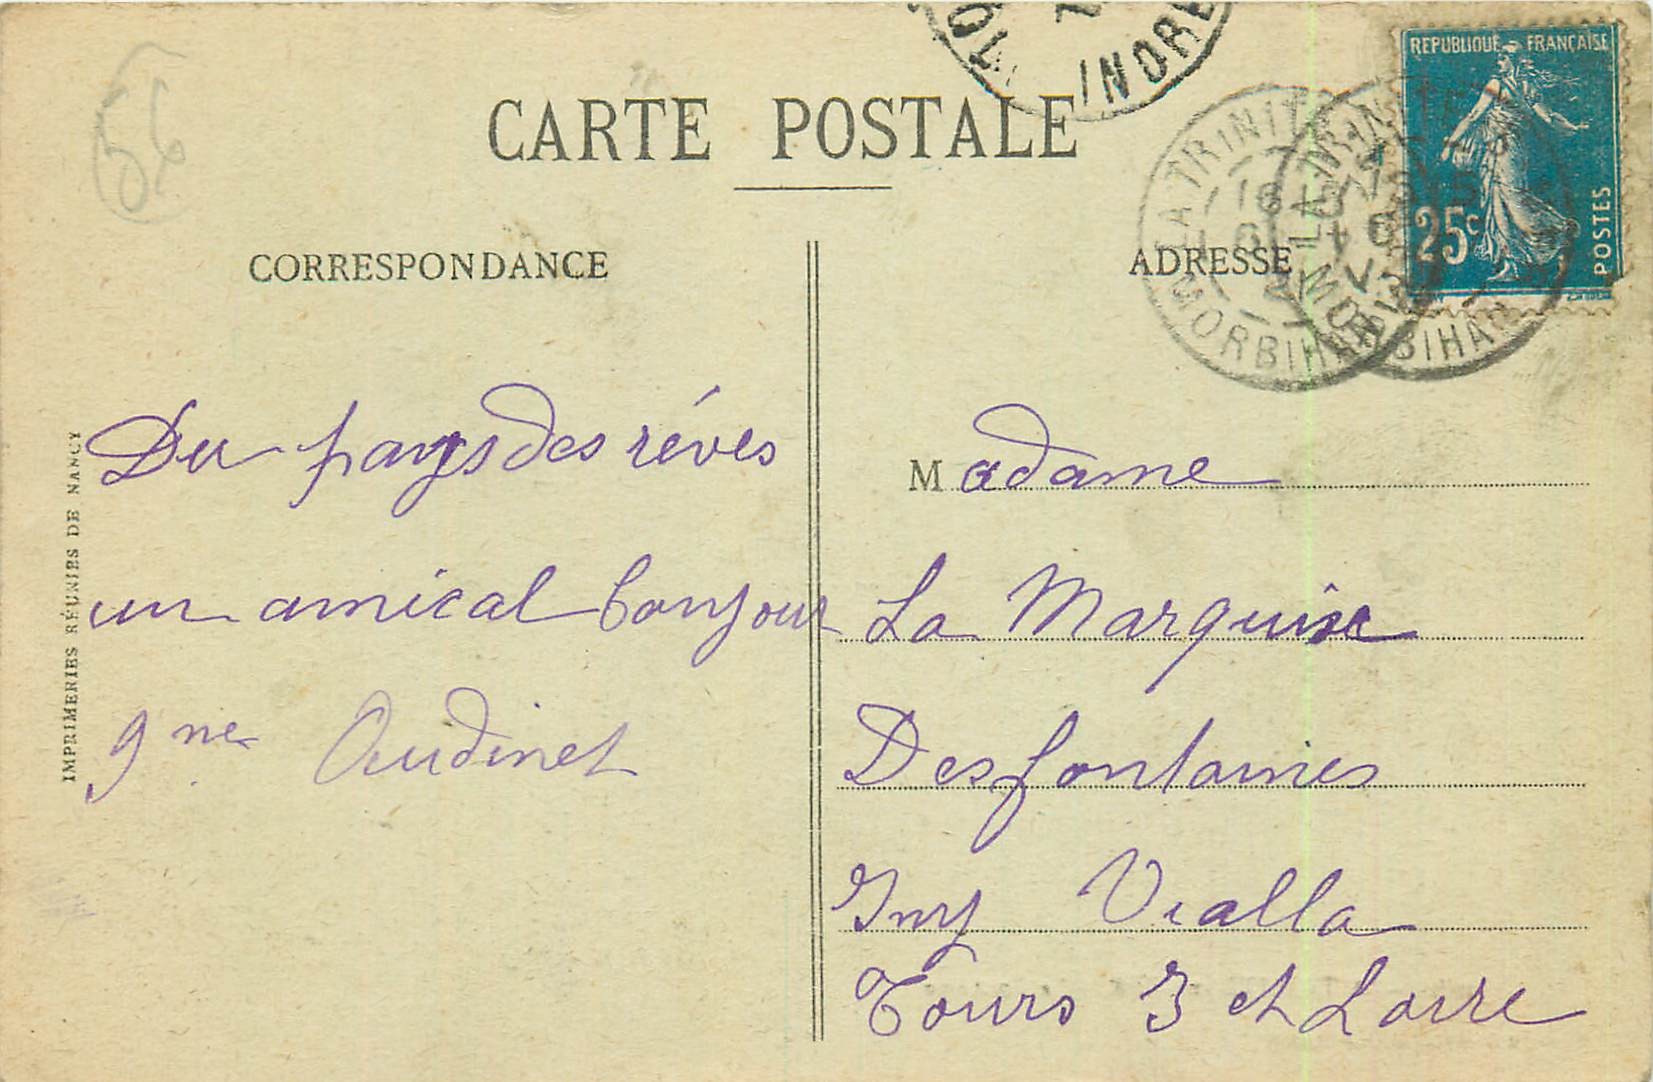 56
CARTE POSTALE
CORRESPONDANCE
ADRESSE
REPUBLIQUE FRANÇAISE
25c
POSTES
LA TRINITÉ
MORBIHAN
LA TRINITÉ
MORBIHAN
Du pays des rêves
un amical bonjour
Oudinet
Madame
La Marquise
Desfontaines
Vialla
Tours I et Loire
IMPRIMERIES RÉUNIES DE NANCY